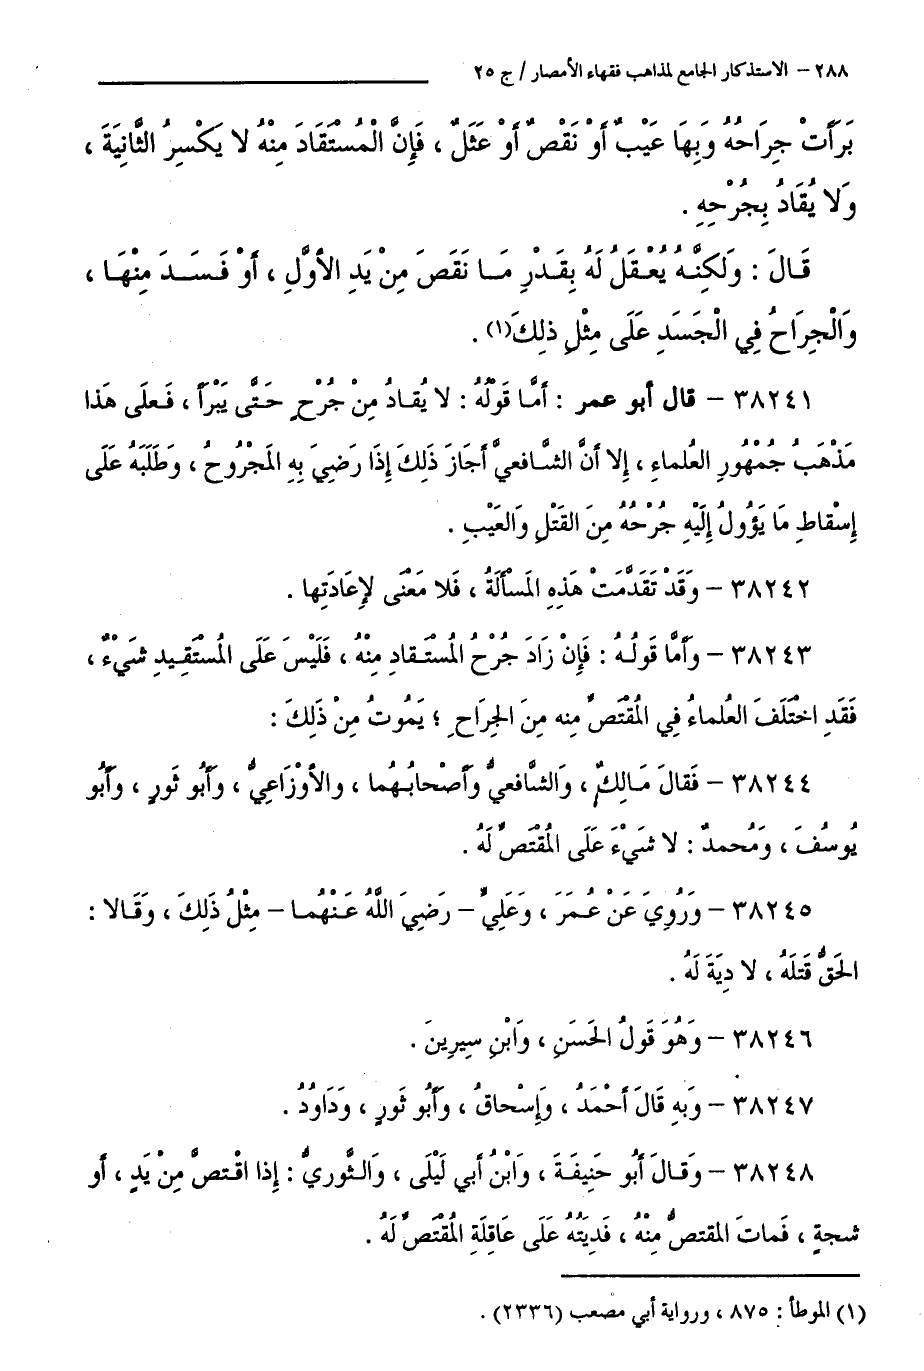 ٢٨٨ – الاستذكار الجامع لمذاهب فقهاء الأمصار / ج ٢٥
بَرَأَتْ جِرَاحُهُ وَبِهَا عَيْبٌ أَوْ نَقْصٌ أَوْ عَثَلٌ ، فَإِنَّ الْمُسْتَقَادَ مِنْهُ لا يَكْسِرُ الثَّانِيَةَ ،
وَلا يُقَادُ بِجُرْحِهِ .
قَالَ : وَلَكِنَّهُ يُعْقَلُ لَهُ بِقَدْرِ مَا نَقَصَ مِنْ يَدِ الأوَّلِ ، أَوْ فَسَدَ مِنْهَا ،
وَالْجِرَاحُ فِي الْجَسَدِ عَلَى مِثْلِ ذلِكَ(١) .
٣٨٢٤١ – قال أبو عمر : أَمَّا قَوْلُهُ : لا يُقَادُ مِنْ جُرْحٍ حَتَّى يَبْرَأَ ، فَعلَى هَذا
مَذْهَبُ جُمْهُورِ العُلماءِ ، إِلا أنَّ الشَّافعيَّ أجَازَ ذَلِكَ إِذَا رَضِيَ بِهِ المَجْرُوحُ ، وَطَلَبَهُ عَلَى
إِسْقاطِ مَا يَؤُولُ إِلَيْهِ جُرْحُهُ مِنَ القَتْلِ وَالعَيْبِ .
٣٨٢٤٢ – وَقَدْ تَقَدَّمَتْ هَذِهِ المَسألَةُ ، فَلا مَعْنَى لإِعَادَتِها .
٣٨٢٤٣ – وَأمَّا قَولُهُ : فَإِنْ زَادَ جُرْحُ المُسْتَقادِ مِنْهُ ، فَلَيْسَ عَلَى المُسْتَقِيدِ شَيْءٌ ،
فَقَدِ اخْتَلَفَ العُلماءُ فِي المُقْتَصِّ منه مِنَ الجِرَاحِ ؛ يَمُوتُ مِنْ ذَلِكَ :
٣٨٢٤٤ – فَقالَ مَالِكٌ ، وَالشَّافعيُّ وَأصْحابُهُما ، والأوْزَاعِيُّ ، وَأبُو ثَورٍ ، وَأبُو
يُوسُفَ ، وَمُحمدٌ : لا شَيْءَ عَلَى المُقْتَصِّ لَهُ .
٣٨٢٤٥ – وَرُوِيَ عَنْ عُمَرَ ، وَعَلِيٍّ – رَضِيَ اللَّهُ عَنْهُما – مِثْلُ ذَلِكَ ، وَقَالا :
الحَقُّ قَتَلَهُ ، لا دِيَةَ لَهُ .
٣٨٢٤٦ – وَهُوَ قَولُ الحَسَنِ ، وَابْنِ سِيرِينَ .
٣٨٢٤٧ – وَبِهِ قَالَ أَحْمَدُ ، وَإِسْحاقُ ، وَأبُو ثَورٍ ، وَدَاوُدُ .
٣٨٢٤٨ – وَقالَ أبُو حَنِيفَةَ ، وَابْنُ أبي لَيْلَى ، وَالثَّوريُّ : إِذا اقْتصَّ مِنْ يَدٍ ، أو
شجةٍ ، فَماتَ المقتصُّ مِنْهُ ، فَدِيَتُهُ عَلَى عَاقِلَةِ المُقْتَصِّ لَهُ .
(١) الموطأ : ٨٧٥ ، ورواية أبي مصعب (٢٣٣٦) .